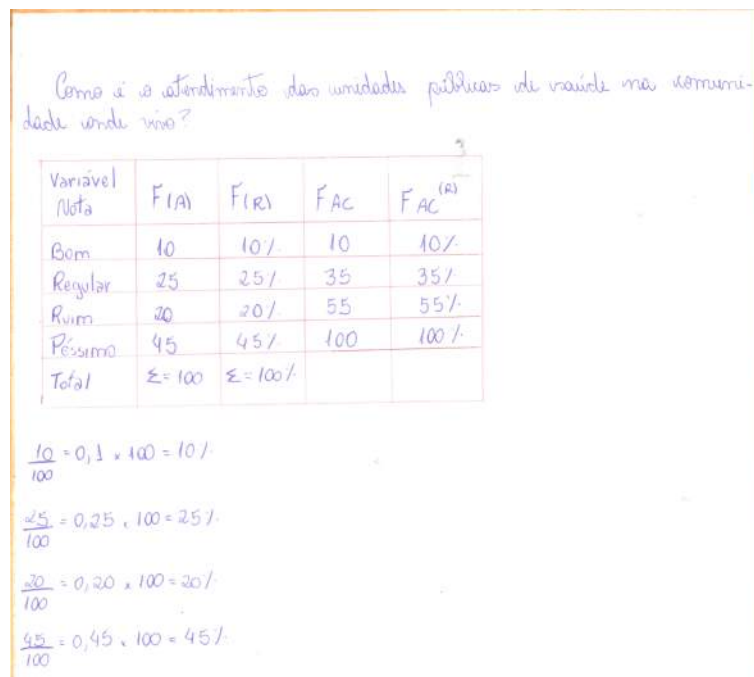 Como é o atendimento das unidades públicas de saúde na comuni-
dade onde vivo?
Variável Nota F(A) F(R) FAC FAC(R)
Bom 10 10% 10 10%
Regular 25 25% 35 35%
Ruim 20 20% 55 55%
Péssimo 45 45% 100 100%
Total Σ=100 Σ=100%
10/100 = 0,1 x 100 = 10%
25/100 = 0,25 x 100 = 25%
20/100 = 0,20 x 100 = 20%
45/100 = 0,45 x 100 = 45%